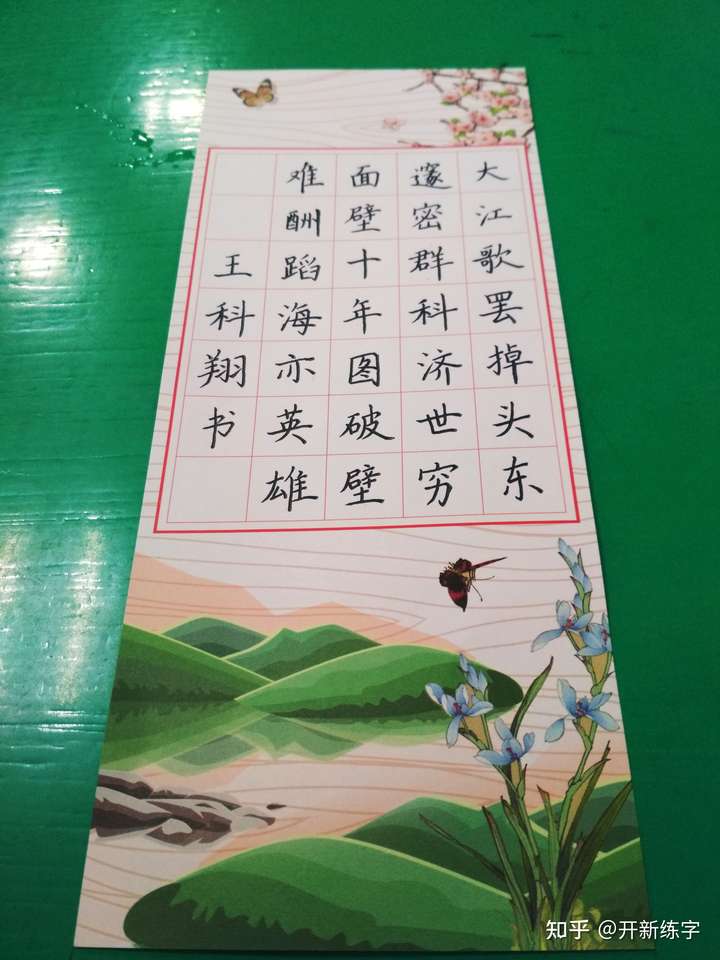 大江歌罢掉头东
邃密群科济世穷
面壁十年图破壁
难酬蹈海亦英雄
王科翔书
知乎 @开新练字